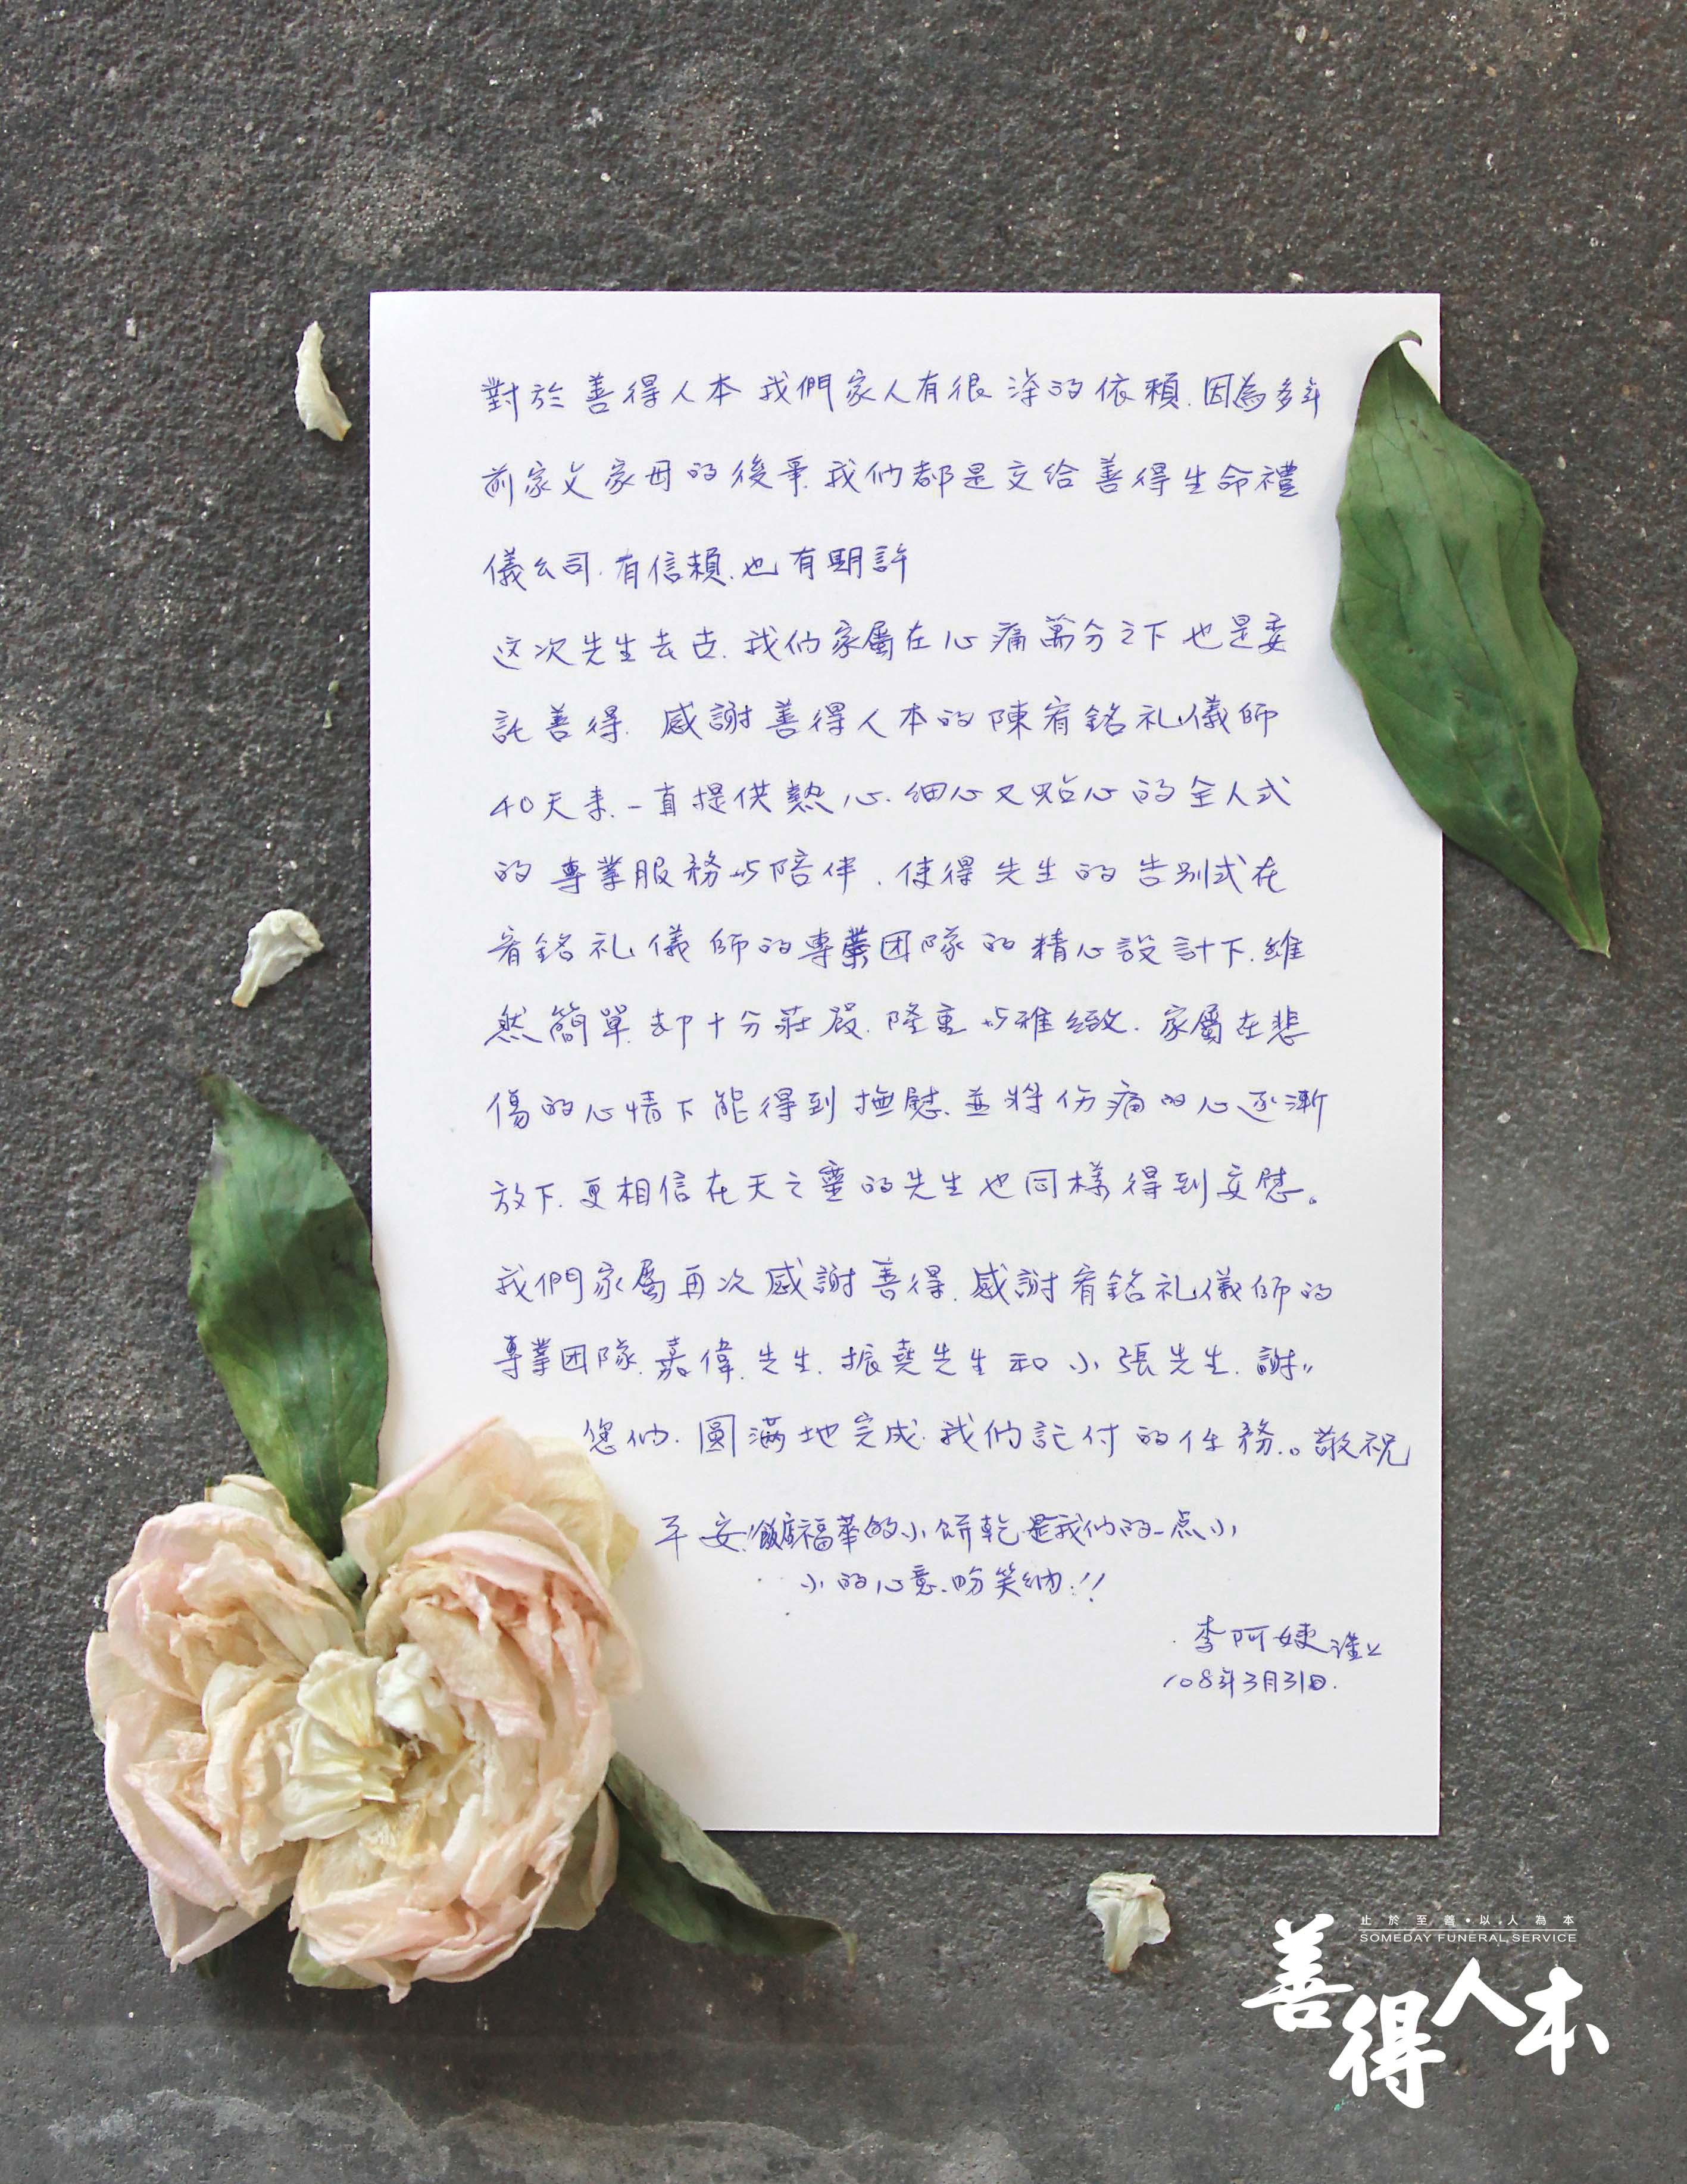 對於善得人本 我們家人有很深的依賴.因為多年
前家父家母的後事.我们都是交给善得生命禮
儀公司.有信賴.也有期許
这次先生去世.我们家屬在心痛萬分之下也是委
託善得. 感謝善得人本的陳宥銘礼儀師
40天来.一直提供熱心.细心又贴心的全人式
的專業服務与陪伴.使得先生的告别式在
宥銘礼儀師的專業团隊的精心設計下.雖
然簡單.却十分莊嚴.隆重与雅緻.家屬在悲
傷的心情下能得到撫慰.並将伤痛的心逐漸
放下.更相信在天之靈的先生也同樣得到安慰。
我們家屬再次感謝善得.感謝宥銘礼儀師的
專業团隊.嘉偉先生.振堯先生和小張先生.謝〃
您们.圓滿地完成.我们託付的任務.。敬祝
平安!飯店福華的小餅乾是我们的一点小
小的心意.盼笑纳.!!
李阿 謹上
108年3月31日.
止於至善•以人為本
SOMEDAY FUNERAL SERVICE
善得人本